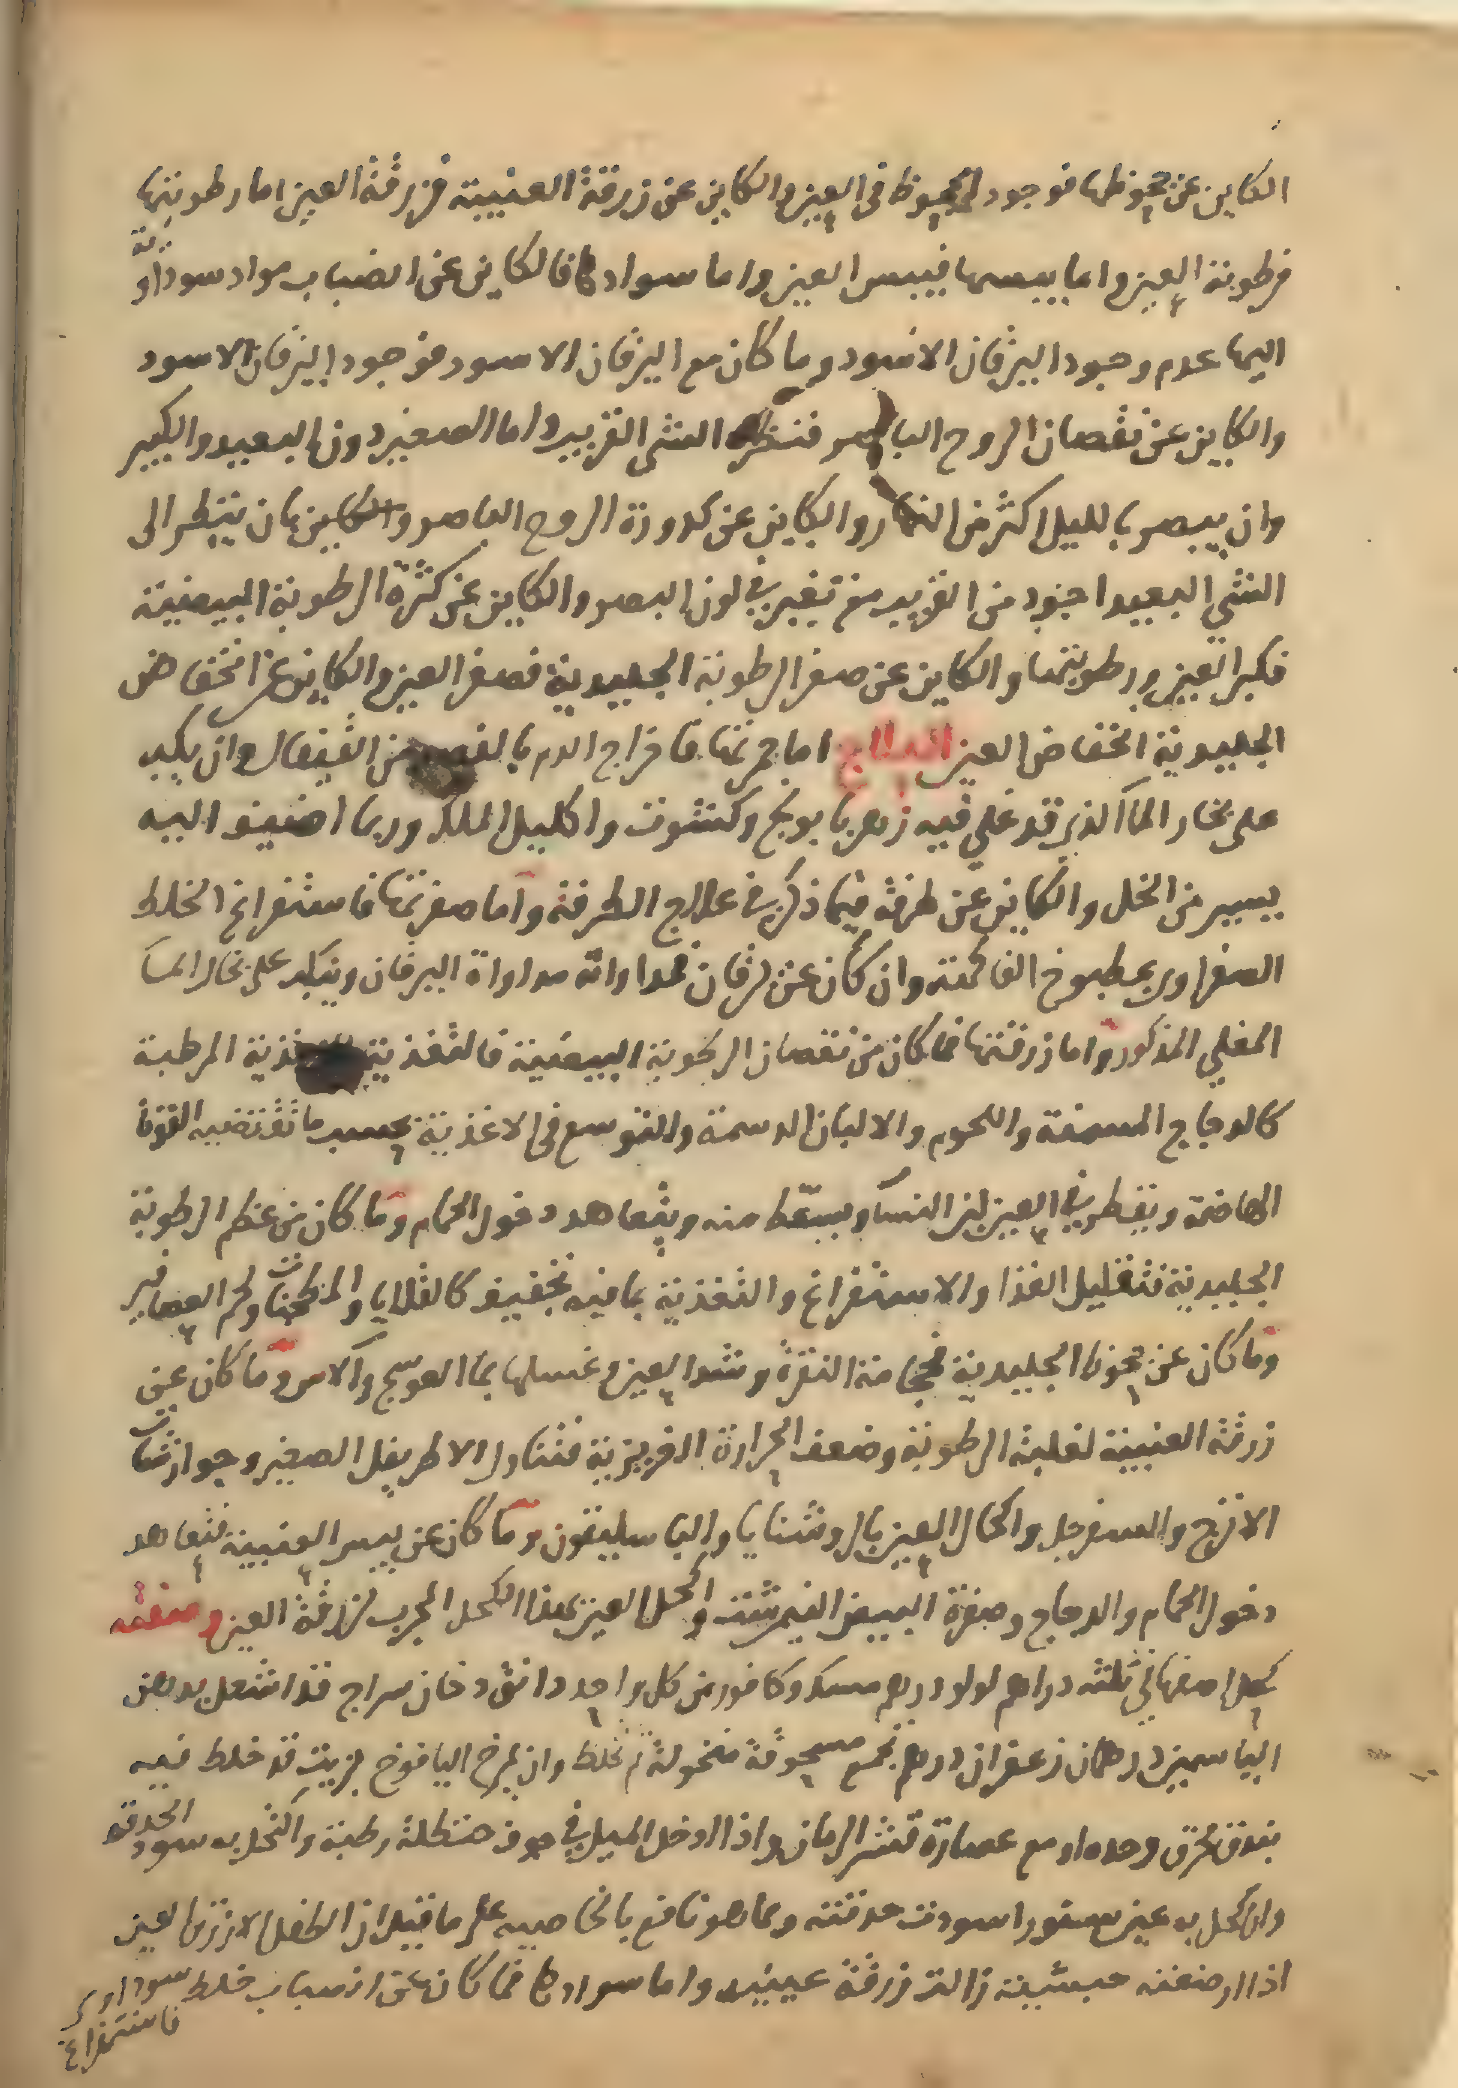 الكاين عن جحوظها فوجود الجحوظ في العين والكاين عن زرقة العنبية فزرقة العين اما رطوبتها
فرطوبة العين واما يبسها فيبس العين واما سوادها فالكاين عن انصباب مواد سوداوية
اليها عدم وجود اليرقان الاسود وما كان مع اليرقان الاسود فوجود اليرقان الاسود
والكاين عن نقصان الروح الباصر فتنظر الشي القريب واما الصغير دون البعيد والكبير
وان يبصر بالليل اكثر من النهار والكاين عن كدورة الروح الباصر والكاين بان ينظر الى
الشي البعيد اجود من القريب مع تغير في لون البصر والكاين عن كثرة الرطوبة البيضية
فكبر العين ورطوبتها والكاين عن صغر الرطوبة الجليدية فصغر العين والكاين عن انخفاض
الجليدية انخفاض العين العلاج اما حمرتها فاخراج الدم بالفصد من القيفال وان يكب
على بخار الما الذي قد غلي فيه زهر بابونج وكشوت واكليل الملك وربما اضيف اليه
يسير من الخل والكاين عن طرفة فيما ذكر في علاج الطرفة واما صفرتها فاستفراغ الخلط
الصفراوي بمطبوخ الفاكهة وان كان عن يرقان فمداواته مداواة اليرقان وينكب على بخار الما
المغلي المذكور واما زرقتها فما كان من نقصان الرطوبة البيضية فالتغذية بالاغذية المرطبة
كالدجاج المسمنة واللحوم والالبان الدسمة والتوسع في الاغذية بحسب ما تقتضيه القوة
الهاضمة ويقطر في العين لبن النسا ويسعط منه ويتعاهد دخول الحمام وما كان من عظم الرطوبة
الجليدية فتقليل الغذا والاستفراغ والتغذية بما فيه تجفيف كالقلايا والمطجنات ولحم العصافير
وما كان عن جحوظ الجليدية فحجامة النقرة وشد العين وغسلها بما العوسج والاس وما كان عن
زرقة العنبية لغلبة الرطوبة وضعف الحرارة الغريزية فتناول الاطريفل الصغير وجوارشات
الاترج والسفرجل واكحال العين بالروشنايا والباسليقون وما كان عن يبس العنبية فتعاهد
دخول الحمام والدجاج وصفرة البيض النيمرشت واكحل العين بهذا الكحل المجرب لزرقة العين وصفته
كحل اصفهاني ثلثه دراهم لولو درهم مسك وكافور من كل واحد دانق دخان سراج قد اشعل بدهن
الياسمين درهمان زعفران درهم تجمع مسحوقة منخولة ثم تخلط وان يمرخ اليافوخ بزيت قد خلط فيه
بندق محرق وحده او مع عصارة قشر الرمان واذا ادخل الميل في جوف حنظلة رطبة واكتحل به سود الحدقة
وان كحل به عين سنور اسودت حدقته ومما هو نافع بالخاصيه على ما قيل ان الطفل الازرق العين
اذا ارضعته حبشية زالت زرقة عينيه واما سوادها فما كان عن انصباب خلط سوداوي
فاستفراغ